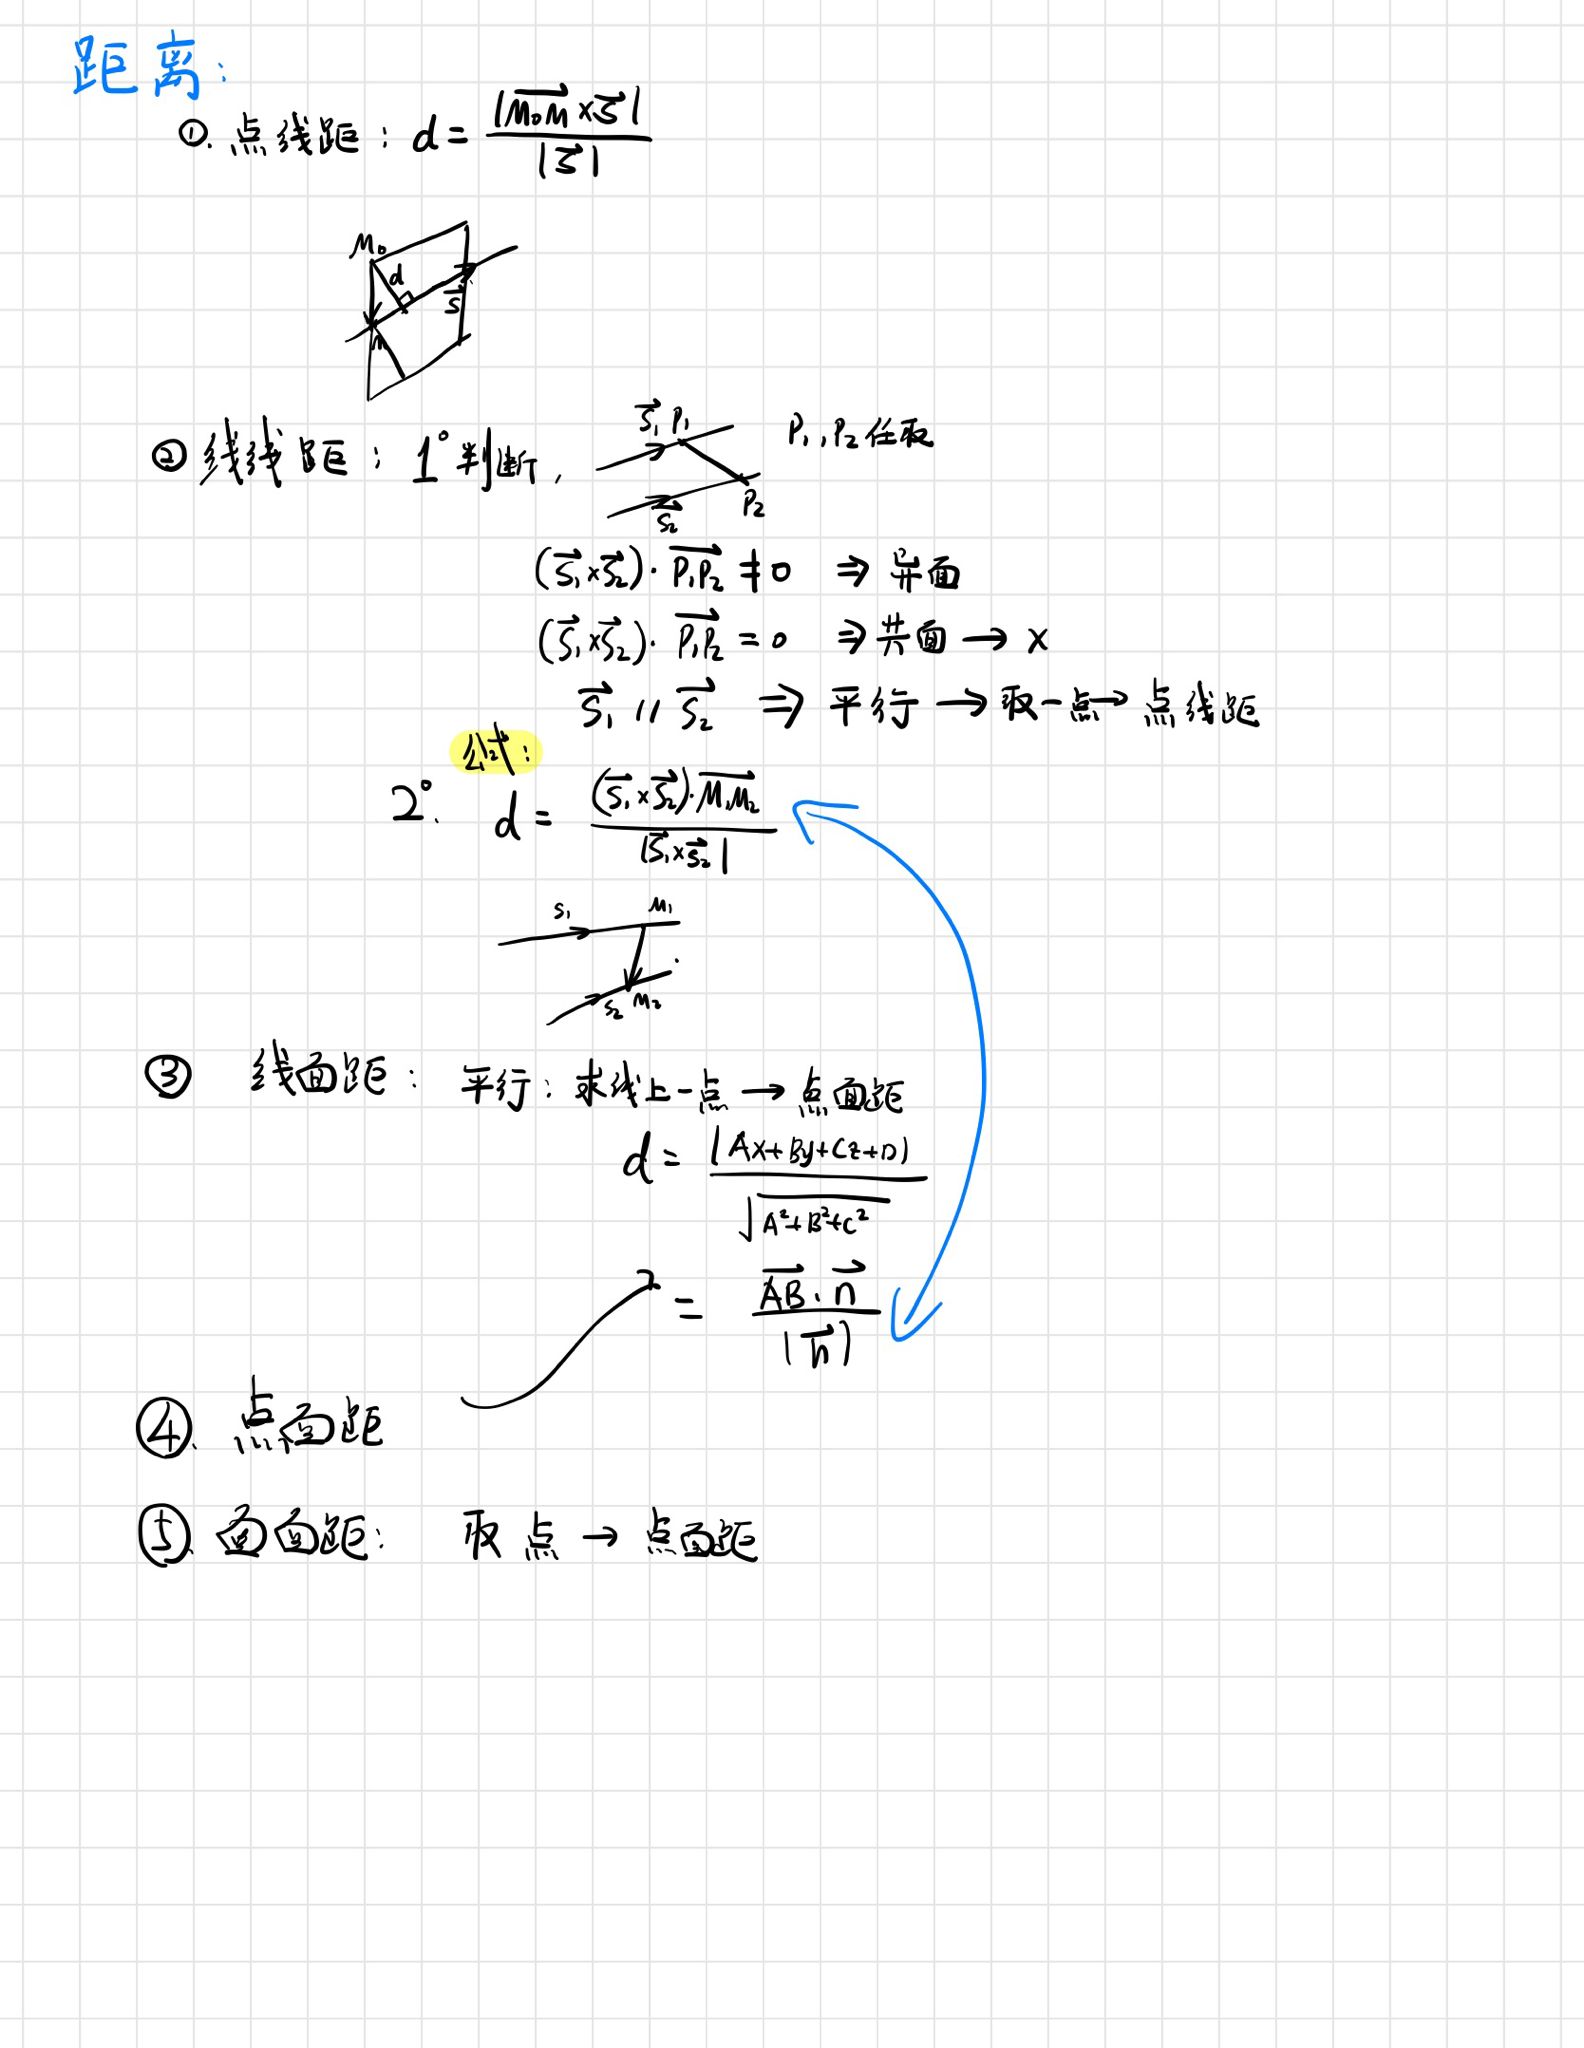 距离：
①. 点线距：d = |M₀M⃗ × s⃗| / |s⃗|
M₀
d
s⃗
M
②线线距：1° 判断，
s⃗₁ P₁
P₁,P₂任取
s⃗₂ P₂
(s⃗₁×s⃗₂)·P₁P₂⃗ ≠ 0 ⇒ 异面
(s⃗₁×s⃗₂)·P₁P₂⃗ = 0 ⇒ 共面 → ×
s⃗₁ // s⃗₂ ⇒ 平行 → 取一点 → 点线距
公式：
2°. d = (s⃗₁×s⃗₂)·M₁M₂⃗ / |s⃗₁×s⃗₂|
s₁ M₁
s₂ M₂
③ 线面距：平行：求线上一点 → 点面距
d = |Ax+By+Cz+D| / √(A²+B²+C²)
= AB⃗·n⃗ / |n⃗|
④. 点面距
⑤. 面面距：取点 → 点面距